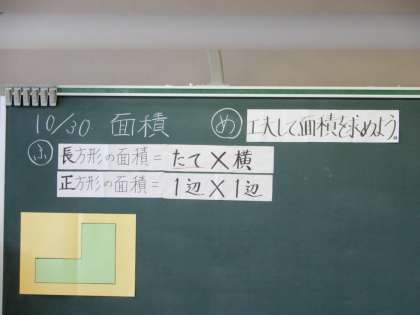 10/30 面積
め 工夫して面積を求めよう。
ふ 長方形の面積=たて×横
正方形の面積=1辺×1辺